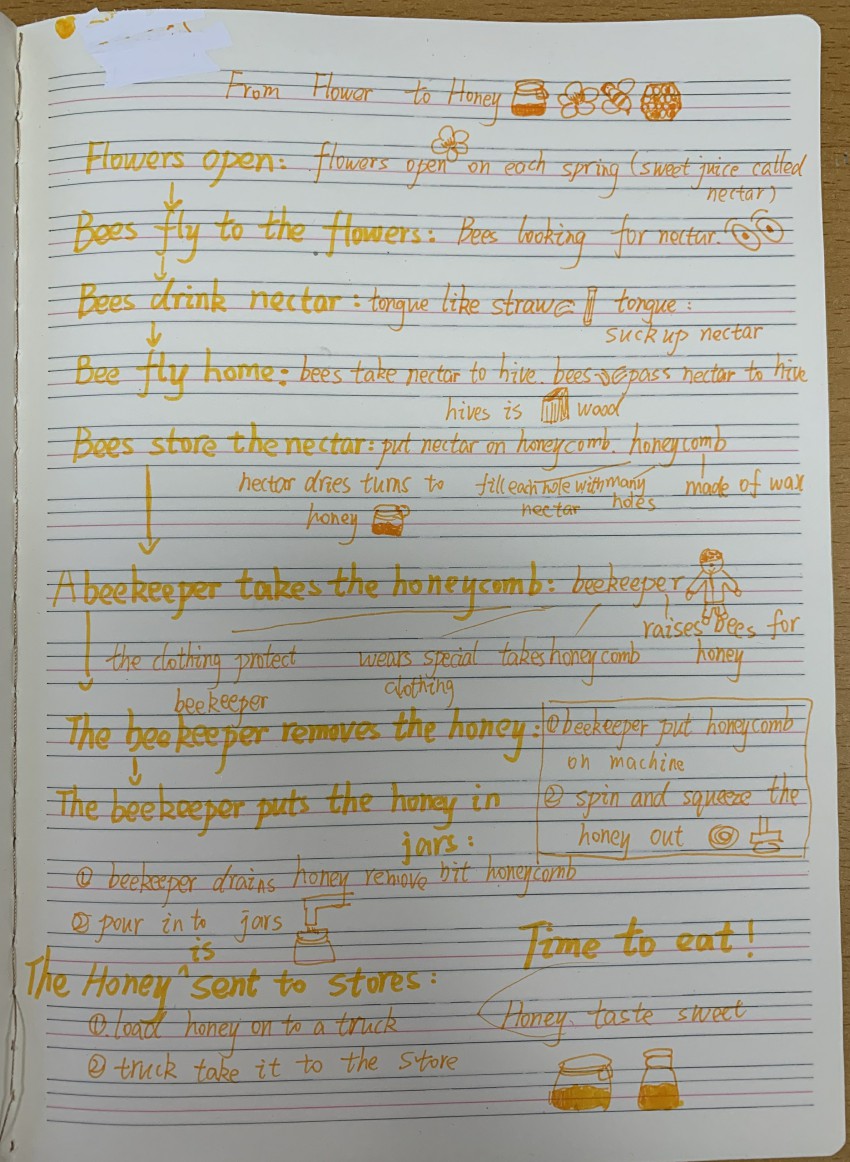 From Flower to Honey
Flowers open: flowers open on each spring (sweet juice called
nectar)
Bees fly to the flowers: Bees looking for nectar.
Bees drink nectar: tongue like straw tongue:
suck up nectar
Bee fly home: bees take nectar to hive. bees pass nectar to hive
hives is wood
Bees store the nectar: put nectar on honeycomb. honeycomb
nectar dries turns to fill each hole with many made of wax
honey nectar holes
A beekeeper takes the honeycomb: beekeeper
raises bees for
the clothing protect wears special takes honeycomb honey
beekeeper clothing
The beekeeper removes the honey: ① beekeeper put honeycomb
on machine
The beekeeper puts the honey in ② spin and squeeze the
jars: honey out
① beekeeper drains honey remove bit honeycomb
② pour in to jars
is Time to eat!
The Honey ^ sent to stores:
① load honey on to a truck Honey taste sweet
② truck take it to the store